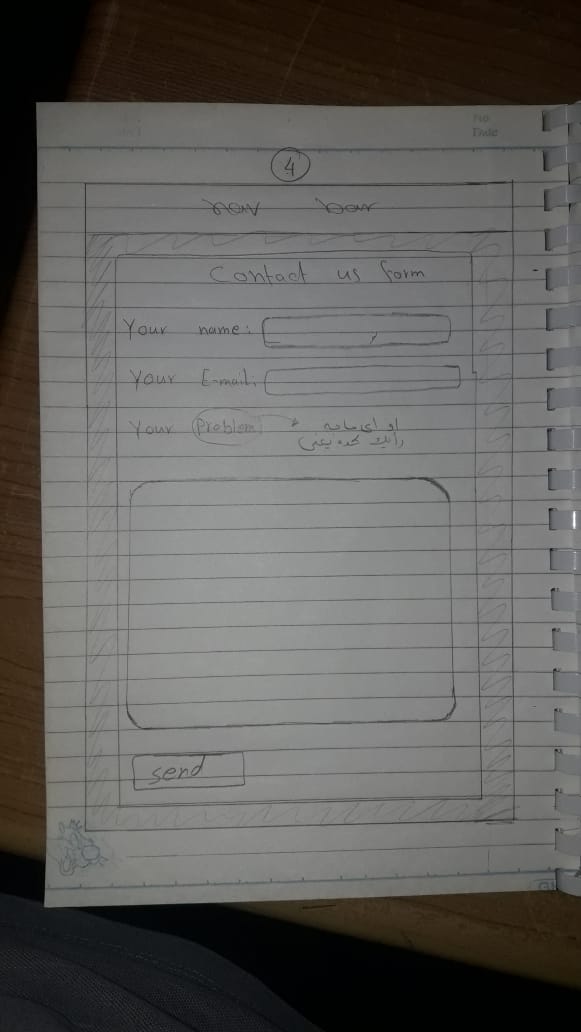 No
Date
4
nav bar
Contact us form
Your name:
Your E-mail:
Your Problem
او اى
رأيك كده يعنى
send